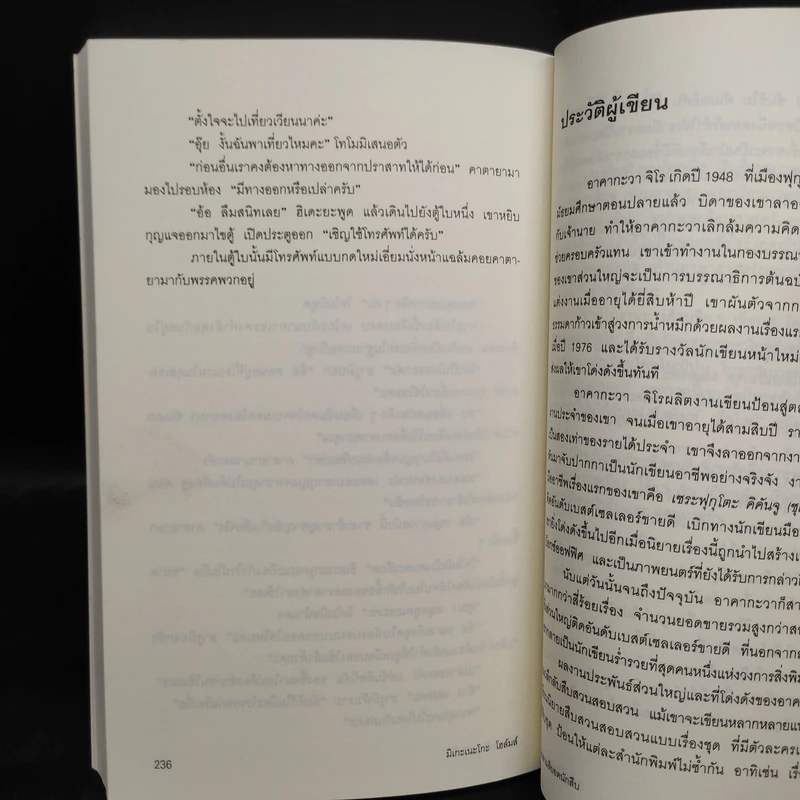 "ตั้งใจจะไปเที่ยวเวียนนาค่ะ"
"อุ๊ย งั้นฉันพาเที่ยวไหมคะ" โทโมมิเสนอตัว
"ก่อนอื่นเราคงต้องหาทางออกจากปราสาทให้ได้ก่อน" คาตายามา
มองไปรอบห้อง "มีทางออกหรือเปล่าครับ"
"อ้อ ลืมสนิทเลย" ฮิเดะยะพูด แล้วเดินไปยังตู้ใบหนึ่ง เขาหยิบ
กุญแจออกมาไขตู้ เปิดประตูออก "เชิญใช้โทรศัพท์ได้ครับ"
ภายในตู้ใบนั้นมีโทรศัพท์แบบกดใหม่เอี่ยมนั่งหน้าแฉล้มคอยคาตา-
ยามากับพรรคพวกอยู่
236
มิเกะเนะโกะ โฮล์มส์
ประวัติผู้เขียน
อาคากะวา จิโร เกิดปี 1948 ที่เมืองฟุกุ
มัธยมศึกษาตอนปลายแล้ว บิดาของเขาลาออ
กับเจ้านาย ทำให้อาคากะวาเลิกล้มความคิด
ช่วยครอบครัวแทน เขาเข้าทำงานในกองบรรณา
ของเขาส่วนใหญ่จะเป็นการบรรณาธิการต้นฉบั
แต่งงานเมื่ออายุได้ยี่สิบห้าปี เขาผันตัวจากก
ธรรมดาก้าวเข้าสู่วงการน้ำหมึกด้วยผลงานเรื่องแร
เมื่อปี 1976 และได้รับรางวัลนักเขียนหน้าใหม่
ส่งผลให้เขาโด่งดังขึ้นทันที
อาคากะวา จิโรผลิตงานเขียนป้อนสู่ตล
งานประจำของเขา จนเมื่อเขาอายุได้สามสิบปี รา
เป็นสองเท่าของรายได้ประจำ เขาจึงลาออกจากงา
หันมาจับปากกาเป็นนักเขียนอาชีพอย่างจริงจัง งา
อาชีพเรื่องแรกของเขาคือ เซระฟุกุโตะ คิคันจู (ชุ
อันดับเบสต์เซลเลอร์ขายดี เบิกทางนักเขียนมือ
ยิ่งโด่งดังขึ้นไปอีกเมื่อนิยายเรื่องนี้ถูกนำไปสร้างเ
ออฟฟิศ และเป็นภาพยนตร์ที่ยังได้รับการกล่าวถึ
นับแต่วันนั้นจนถึงปัจจุบัน อาคากะวาก็สา
มากกว่าสี่ร้อยเรื่อง จำนวนยอดขายรวมสูงกว่าสอ
ส่วนใหญ่ติดอันดับเบสต์เซลเลอร์ขายดี ที่นอกจากส
กลายเป็นนักเขียนร่ำรวยที่สุดคนหนึ่งแห่งวงการสิ่งพิม
ผลงานประพันธ์ส่วนใหญ่และที่โด่งดังของอาค
ลึกลับสืบสวนสอบสวน แม้เขาจะเขียนหลากหลายแน
นิยายสืบสวนสอบสวนแบบเรื่องชุด ที่มีตัวละครเ
ชุด ป้อนให้แต่ละสำนักพิมพ์ไม่ซ้ำกัน อาทิเช่น เรื่